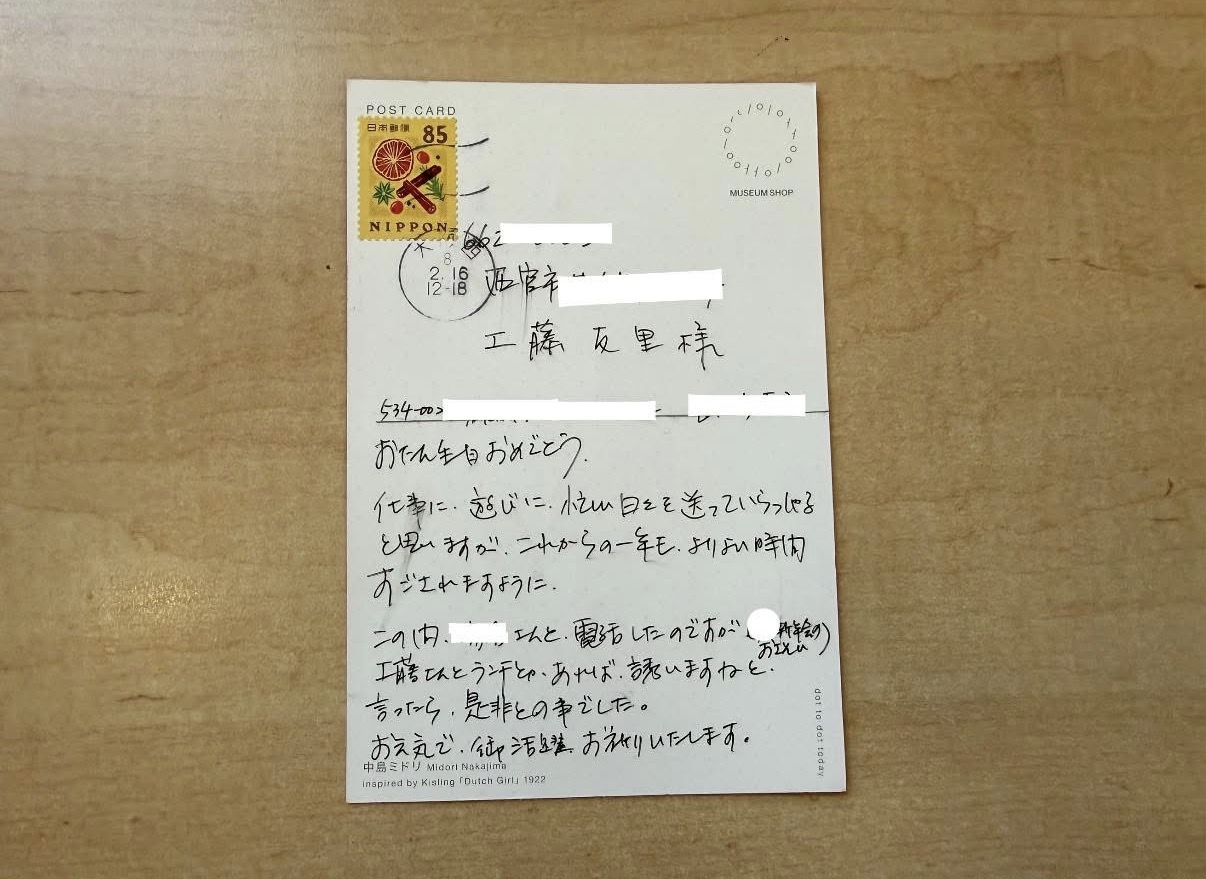 POST CARD
日本郵便 85
NIPPON
MUSEUM SHOP
8
2.16
12-18
662
西宮市
工藤 友里 様
534-002
おたん生日おめでとう.
仕事に、遊びに、忙しい日々を送っていらっしゃる
と思いますが、これからの一年も、よりよい時間
すごされますように.
この間、さんと、電話したのですが(新年会の
おさそい)
工藤さんとランチとか、あれば、誘いますねと、
言ったら、是非との事でした。
お元気で、御活躍、お祈りいたします。
中島ミドリ Midori Nakajima
inspired by Kisling「Dutch Girl」1922
dot to dot today